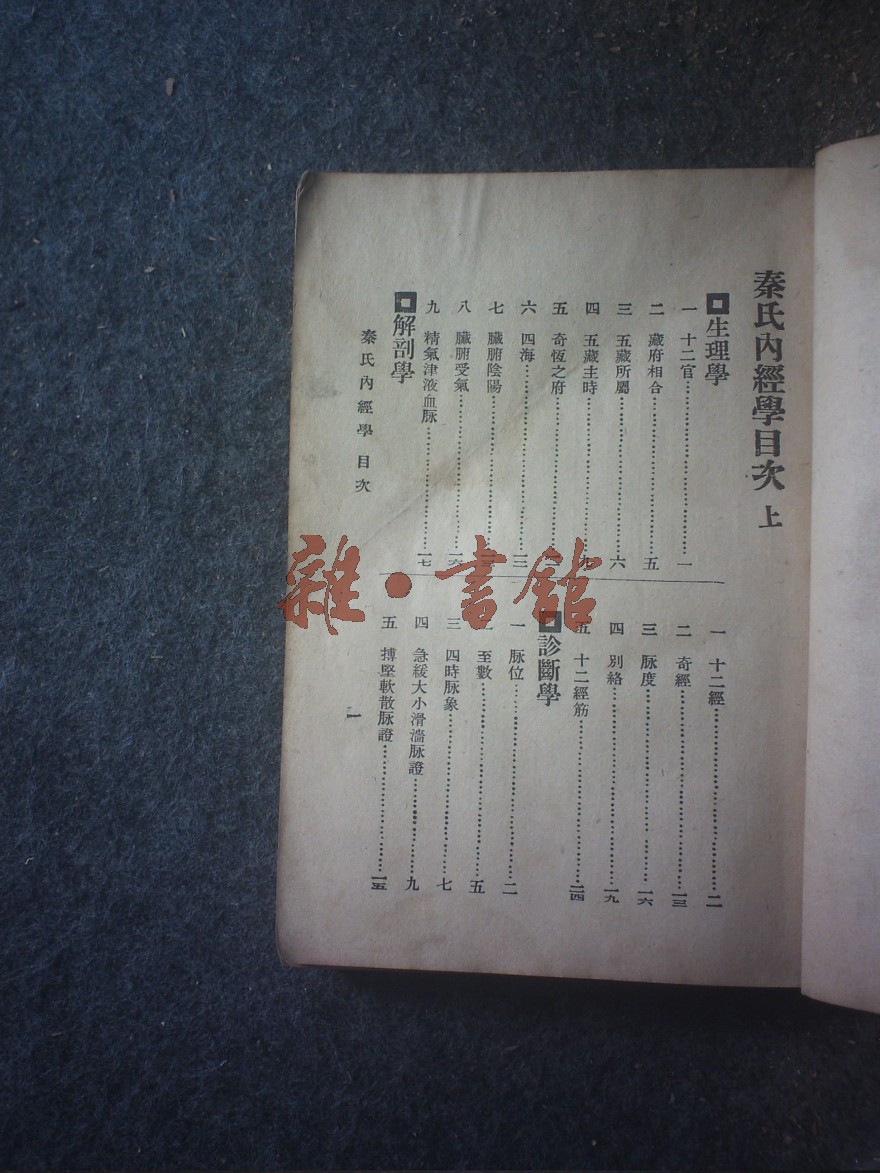 秦氏內經學目次 上
生理學
一 十二官 一
二 藏府相合 五
三 五藏所屬 六
四 五藏主時 九
五 奇恆之府
六 四海 一三
七 臟腑陰陽 一五
八 臟腑受氣 一六
九 精氣津液血脉 一七
解剖學
一 十二經 二
二 奇經 一三
三 脉度 一六
四 別絡 一九
五 十二經筋 二四
診斷學
一 脉位 二
二 至數 五
三 四時脉象 七
四 急緩大小滑濇脉證 九
五 搏堅軟散脉證 一五
秦氏內經學 目次
一
雜·書館